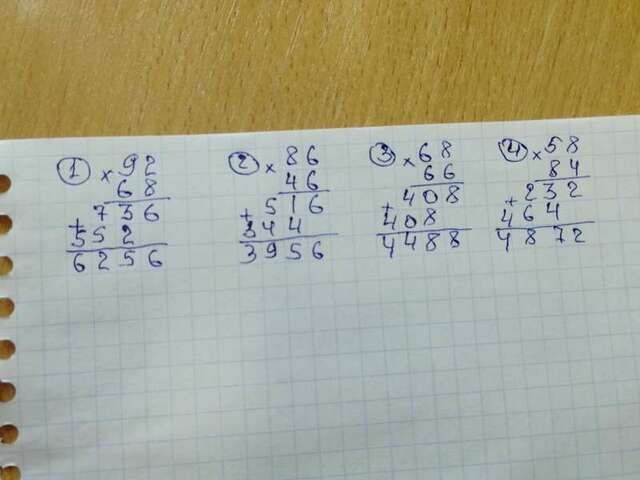 ① × 92 ② × 86 ③ × 68 ④ × 58
68 46 66 84
736 + 516 408 + 232
+ 552 344 + 408 464
6256 3956 4488 4872